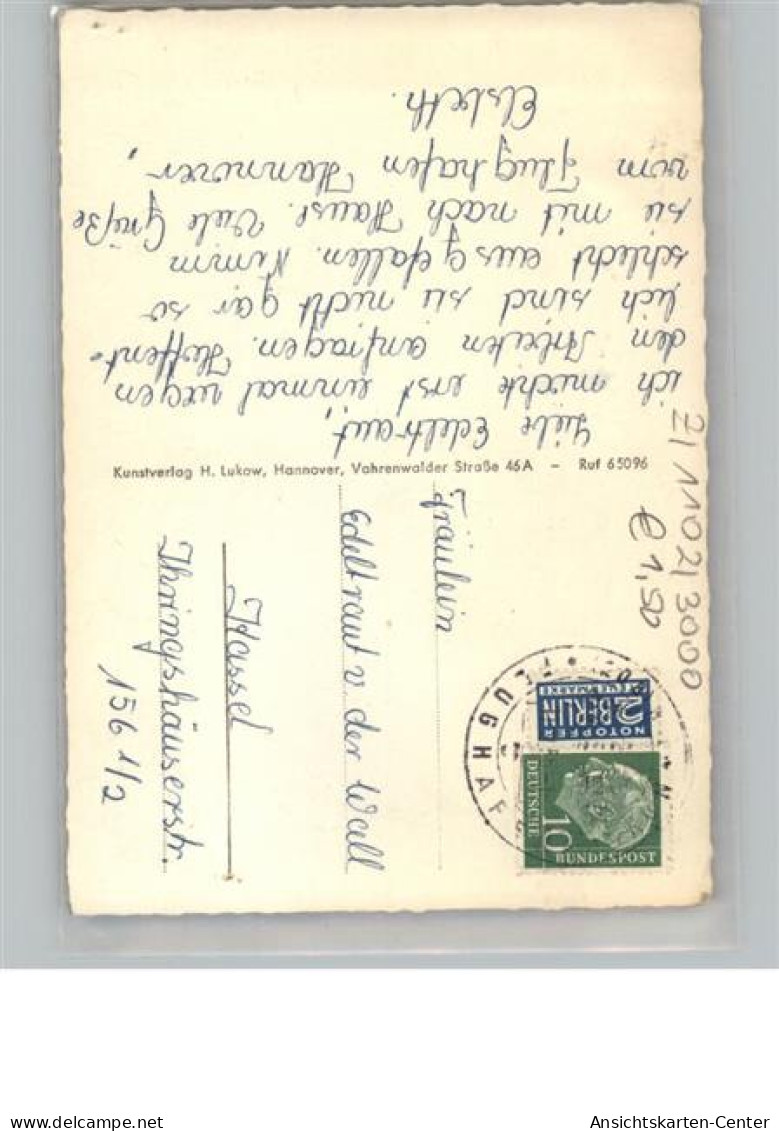 Liebe Edeltraut,
ich möchte erst einmal wegen
den Arbeiten anfragen. Hoffent-
lich sind sie nicht gar so
schlecht ausgefallen. Nimm
sie mit nach Haus. Viele Grüße
vom Flughafen Hannover,
Elsbeth.
Kunstverlag H. Lukow, Hannover, Vahrenwalder Straße 46A – Ruf 65096
Fräulein
Edeltraut v. der Wall
Kassel
Ihringshäuserstr.
156 1/2
21 1102/3000
€ 1,50
NOTOPFER
2 BERLIN
STEUERMARKE
10
DEUTSCHE
BUNDESPOST
FLUGHAF
Ansichtskarten-Center